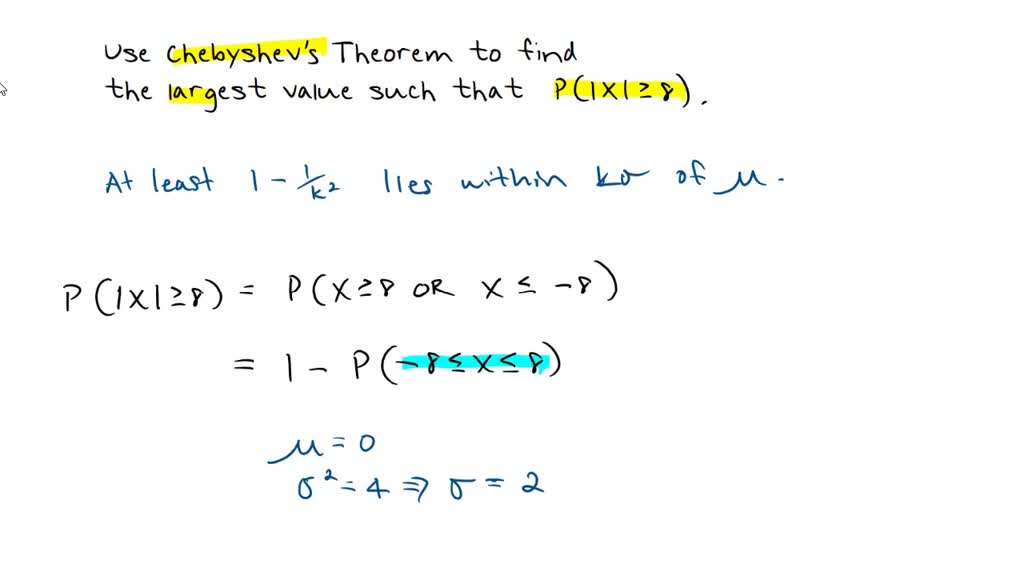 Use Chebyshev's Theorem to find
the largest value such that P(|X| ≥ 8).
At least 1 - 1/k² lies within kσ of μ.
P(|X| ≥ 8) = P(X ≥ 8 OR X ≤ -8)
= 1 - P(-8 ≤ X ≤ 8)
μ = 0
σ² = 4 ⇒ σ = 2